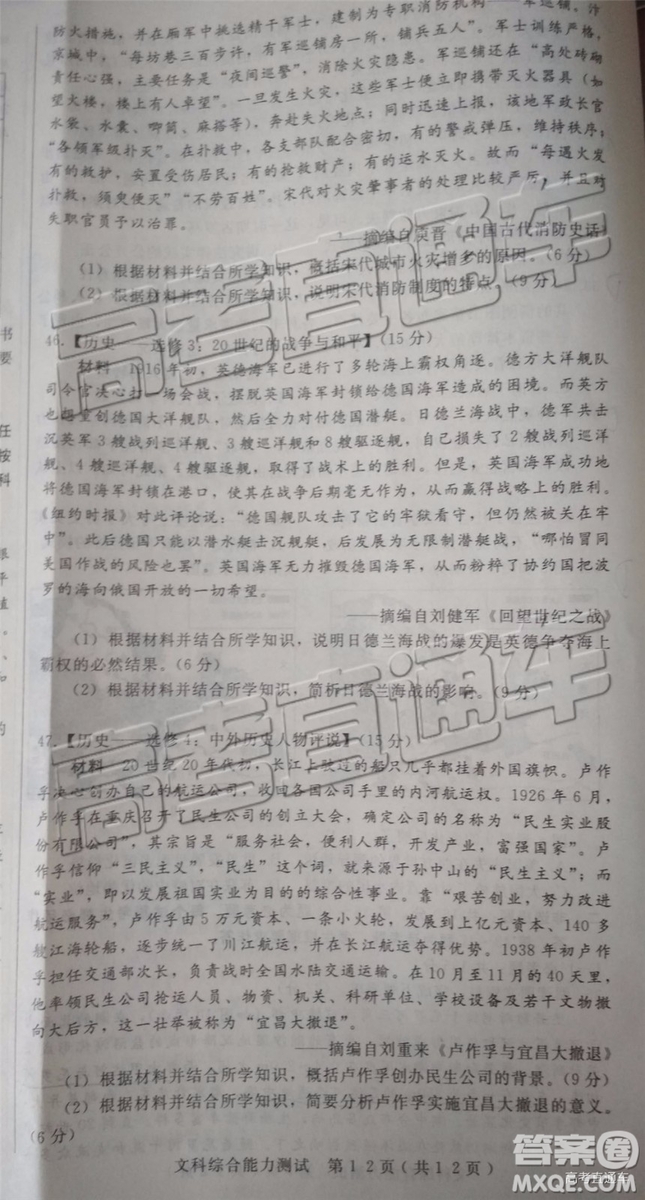 防火措施，并在厢军中挑选精干军士，建制为专职消防机构——军巡铺。汴
京城中，“每坊巷三百步许，有军巡铺房一所，铺兵五人”。军士训练严格，
责任心强，主要任务是“夜间巡警”，消除火灾隐患。军巡铺还在“高处砖砌
望火楼，楼上有人卓望”。一旦发生火灾，这些军士便立即携带灭火器具（如
水袋、水囊、唧筒、麻搭等），奔赴失火地点；同时迅速上报，该地军政长官
“各领军级扑灭”。在扑救中，各支部队配合密切，有的警戒弹压，维持秩序；
有的救护，安置受伤居民；有的抢救财产；有的运水灭火。故而“每遇火发
扑救，须臾便灭”“不劳百姓”。宋代对火灾肇事者的处理比较严厉，并且对
失职官员予以治罪。
——摘编自 晋《中国古代消防史话》
（1）根据材料并结合所学知识，概括宋代城市火灾增多的原因。（6分）
（2）根据材料并结合所学知识，说明宋代消防制度的特点。（9分）
46.【历史——选修3：20世纪的战争与和平】（15分）
材料 1916年初，英德海军已进行了多轮海上霸权角逐。德方大洋舰队
司令官决心 一场会战，摆脱英国海军封锁给德国海军造成的困境。而英方
也 望 创德国大洋舰队，然后全力对付德国潜艇。日德兰海战中，德军共击
沉英军3艘战列巡洋舰、3艘巡洋舰和8艘驱逐舰，自己损失了2艘战列巡洋
舰、4艘巡洋舰、4艘驱逐舰，取得了战术上的胜利。但是，英国海军成功地
将德国海军封锁在港口，使其在战争后期毫无作为，从而赢得战略上的胜利。
《纽约时报》对此评论说：“德国舰队攻击了它的牢狱看守，但仍然被关在牢
中”。此后德国只能以潜水艇去击沉商船，后发展为无限制潜艇战，“哪怕冒同
美国作战的风险也罢”。英国海军无力摧毁德国海军，从而粉碎了协约国把波
罗的海向俄国开放的一切希望。
——摘编自刘健军《回望世纪之战》
（1）根据材料并结合所学知识，说明日德兰海战的爆发是英德争夺海上
霸权的必然结果。（6分）
（2）根据材料并结合所学知识，简析日德兰海战的影响。（9分）
47.【历史——选修4：中外历史人物评说】（15分）
材料 20世纪20年代初，长江上驶过的船只几乎都挂着外国旗帜。卢作
孚决心创办自己的航运公司，收回各国公司手里的内河航运权。1926年6月，
卢作孚在重庆召开了民生公司的创立大会，确定公司的名称为“民生实业股
份有限公司”，其宗旨是“服务社会，便利人群，开发产业，富强国家”。卢
作孚信仰“三民主义”，“民生”这个词，就来源于孙中山的“民生主义”；而
“实业”，即以发展祖国实业为目的的综合性事业。靠“艰苦创业，努力改进
航运服务”，卢作孚由5万元资本、一条小火轮，发展到上亿元资本、140多
艘江海轮船，逐步统一了川江航运，并在长江航运夺得优势。1938年初卢作
孚担任交通部次长，负责战时全国水陆交通运输。在10月至11月的40天里，
他率领民生公司抢运人员、物资、机关、科研单位、学校设备及若干文物撤
向大后方，这一壮举被称为“宜昌大撤退”。
——摘编自刘重来《卢作孚与宜昌大撤退》
（1）根据材料并结合所学知识，概括卢作孚创办民生公司的背景。（9分）
（2）根据材料并结合所学知识，简要分析卢作孚实施宜昌大撤退的意义。
（6分）
文科综合能力测试 第12页（共12页）
高考直通车
高考直通车
高考直通车
答案圈
MXQE.COM
高考直通车
书
要
任
按
科